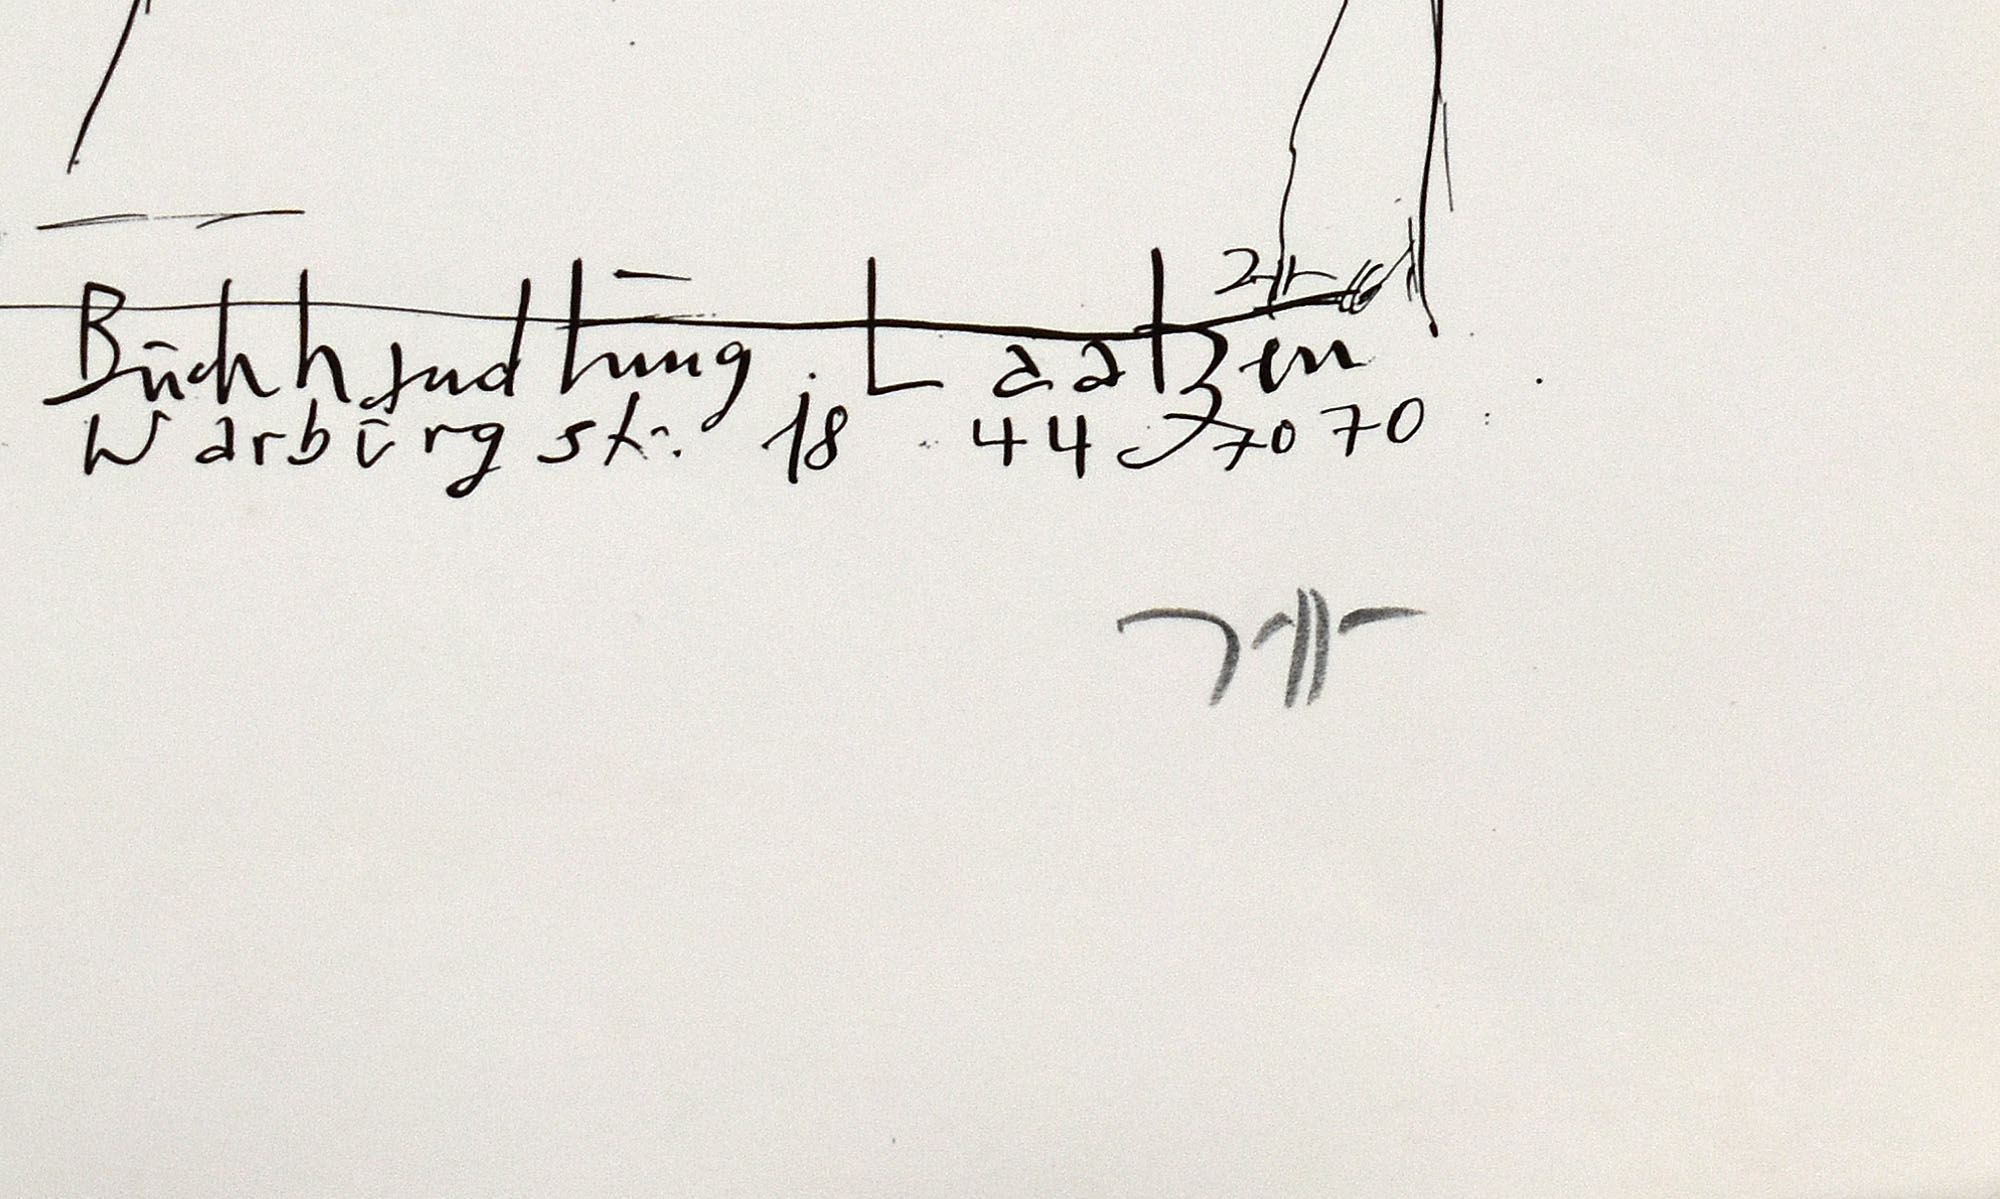 Buchhandlung Laatzen
Warburgstr. 18 44 70 70